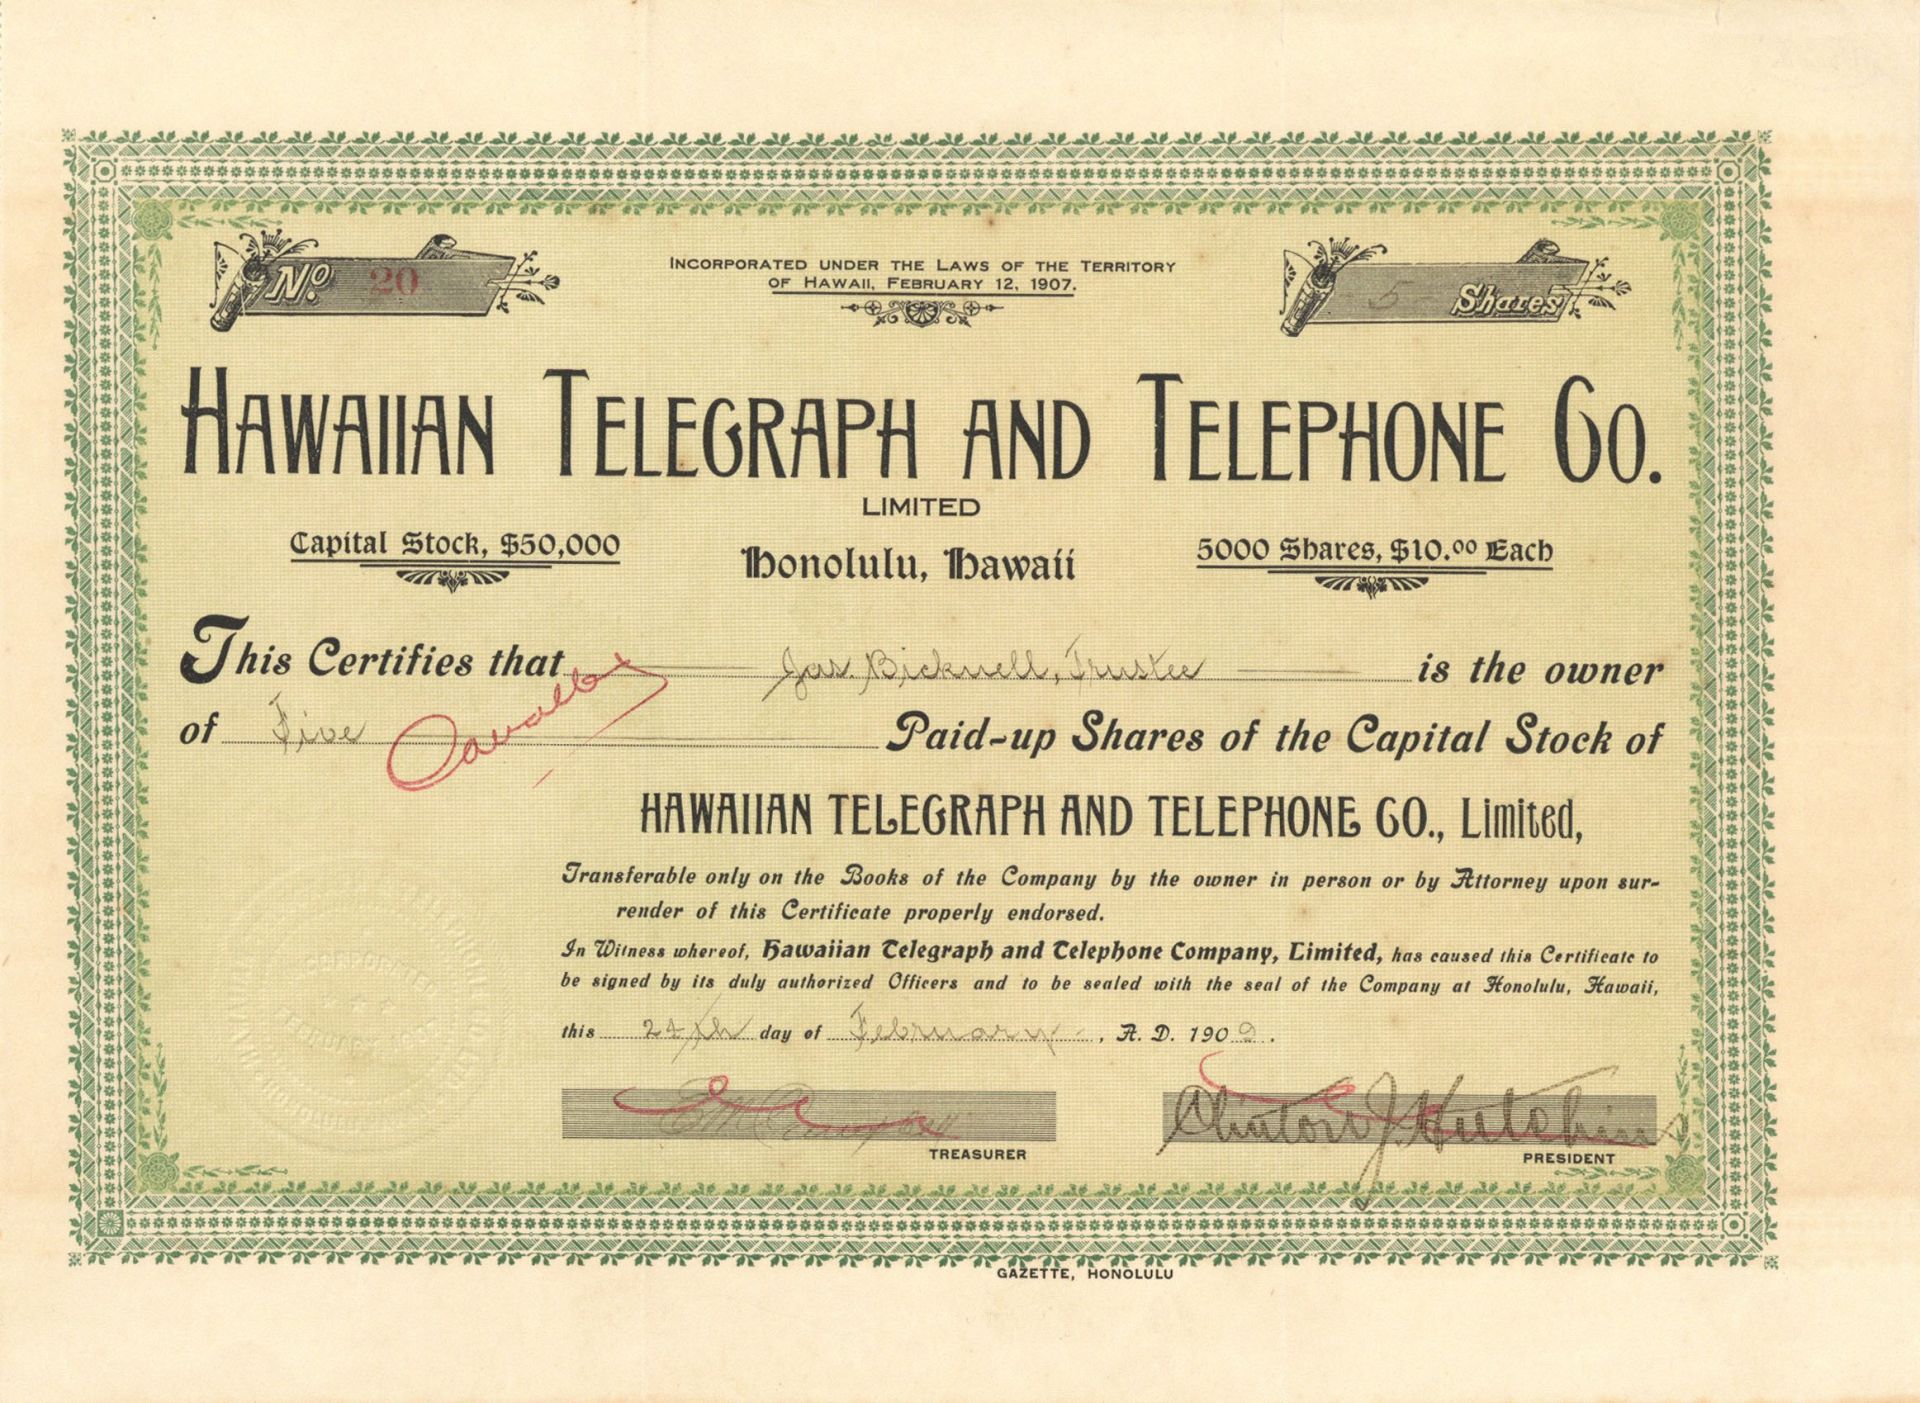 No. 20
INCORPORATED UNDER THE LAWS OF THE TERRITORY
OF HAWAII, FEBRUARY 12, 1907.
5 Shares
HAWAIIAN TELEGRAPH AND TELEPHONE CO.
LIMITED
Capital Stock, $50,000
Honolulu, Hawaii
5000 Shares, $10.00 Each
This Certifies that Jas. Bicknell, Trustee is the owner
of Five Paid-up Shares of the Capital Stock of
HAWAIIAN TELEGRAPH AND TELEPHONE CO., Limited,
Transferable only on the Books of the Company by the owner in person or by Attorney upon sur-
render of this Certificate properly endorsed.
In Witness whereof, Hawaiian Telegraph and Telephone Company, Limited, has caused this Certificate to
be signed by its duly authorized Officers and to be sealed with the seal of the Company at Honolulu, Hawaii,
this 24th day of February, A. D. 1909.
TREASURER
Clinton J. Hutchins
PRESIDENT
GAZETTE, HONOLULU